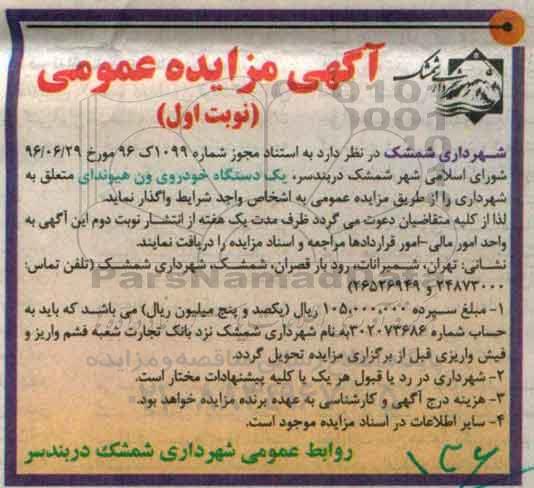 آگهی مزایده عمومی
(نوبت اول)
شهرداری شمشک
شهرداری شمشک در نظر دارد به استناد مجوز شماره ۱۰۹۹ک ۹۶ مورخ ۹۶/۰۶/۲۹
شورای اسلامی شهر شمشک دربندسر، یک دستگاه خودروی ون هیوندای متعلق به
شهرداری را از طریق مزایده عمومی به اشخاص واجد شرایط واگذار نماید.
لذا از کلیه متقاضیان دعوت می گردد ظرف مدت یک هفته از انتشار نوبت دوم این آگهی به
واحد امور مالی-امور قراردادها مراجعه و اسناد مزایده را دریافت نمایند.
نشانی: تهران، شمیرانات، رود بار قصران، شمشک، شهرداری شمشک (تلفن تماس:
۲۴۸۷۳۰۰۰ و ۲۶۵۲۶۹۴۹)
۱- مبلغ سپرده ۱۰۵,۰۰۰,۰۰۰ ریال (یکصد و پنج میلیون ریال) می باشد که باید به
حساب شماره ۳۰۲۰۷۳۶۸۶ به نام شهرداری شمشک نزد بانک تجارت شعبه فشم واریز و
فیش واریزی قبل از برگزاری مزایده تحویل گردد.
۲- شهرداری در رد یا قبول هر یک یا کلیه پیشنهادات مختار است.
۳- هزینه درج آگهی و کارشناسی به عهده برنده مزایده خواهد بود.
۴- سایر اطلاعات در اسناد مزایده موجود است.
روابط عمومی شهرداری شمشک دربندسر
۱۳۶